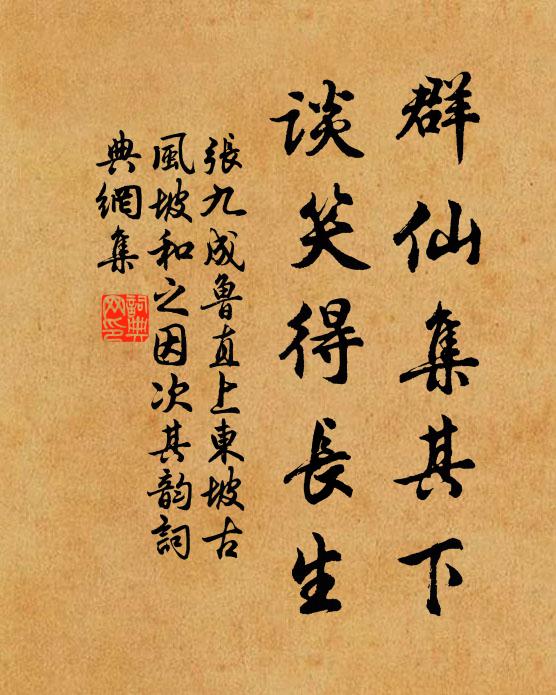 群仙集其下
谈笑得長生
張九成魯直上東坡古
風坡和之因次其韵詞
典網集
詞典
网印